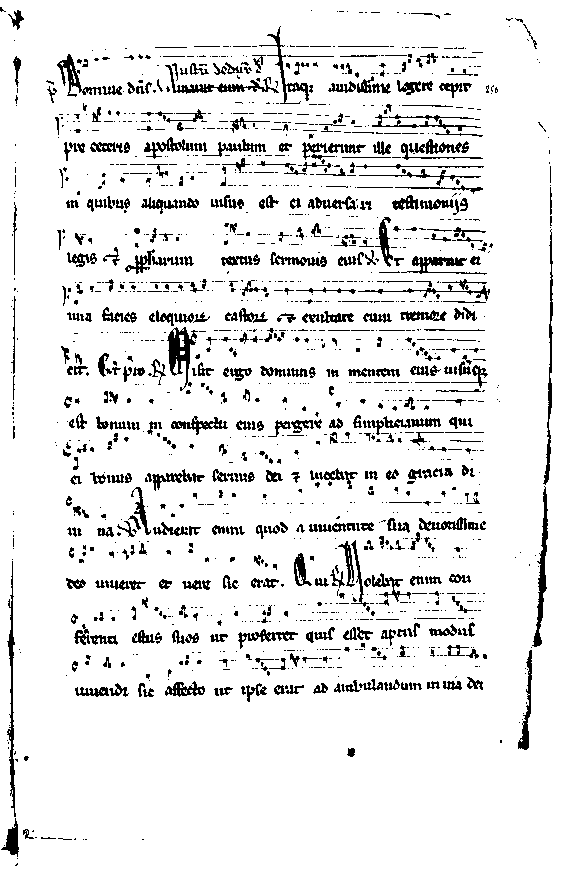 Domine deus Itaqꝫ auidissime legere cepit 256
pre ceteris apostolum paulum et perierunt ille questiones
in quibus aliquando uisus est ei aduersari testimonijs
legis ⁊ textus sermonis eius Et apparuit ei
una facies eloquiorum castorum ⁊ exultare cum tremore didi
cit. Misit ergo dominus in mentem eius uisūqꝫ
est bonum in conspectu eius pergere ad simplicianum qui
ei bonus apparebat seruus dei ⁊ lucebat in eo gracia di
ui na Audierat enim quod a iuuentute sua deuotissime
deo uiueret et uere sic erat. Qui Volebat enim con
ferenti estus suos ut proferret quis esset aptus modus
uiuendi sic affecto ut ipse erat ad ambulandum in uia dei